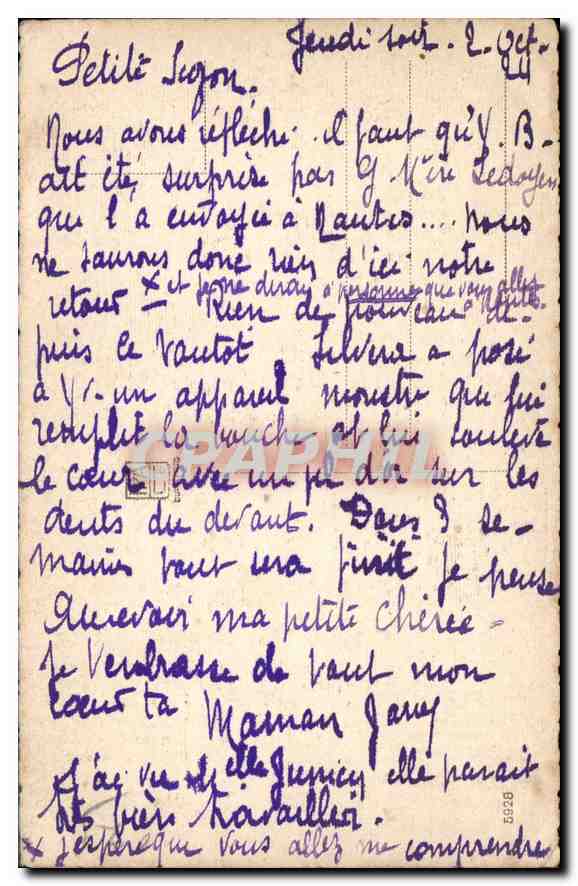 Jeudi soir. 2. Oct.
24
Petite
Nous avons réfléchi. il faut qu'Y. B-
ait été surprise par G. Mère Ledoyen
que l'a envoyée à Nantes.... nous
ne saurons donc rien d'ici notre
retour x et je ne dirai à personne que vous allez à Nantes.
Rien de nouveau de-
puis le Vautot a posé
à Yv. un appareil monstre qui lui
remplit la bouche et lui soulève
le cœur avec un fil d'or sur les
dents du devant. Dans 3 se-
maines tout sera finit je pense
Au revoir ma petite chérie -
Je t'embrasse de tout mon
cœur ta Maman
J'ai vu elle parait
très bien travailler.
x j'espère que vous allez me comprendre
5928
CPAPHIL